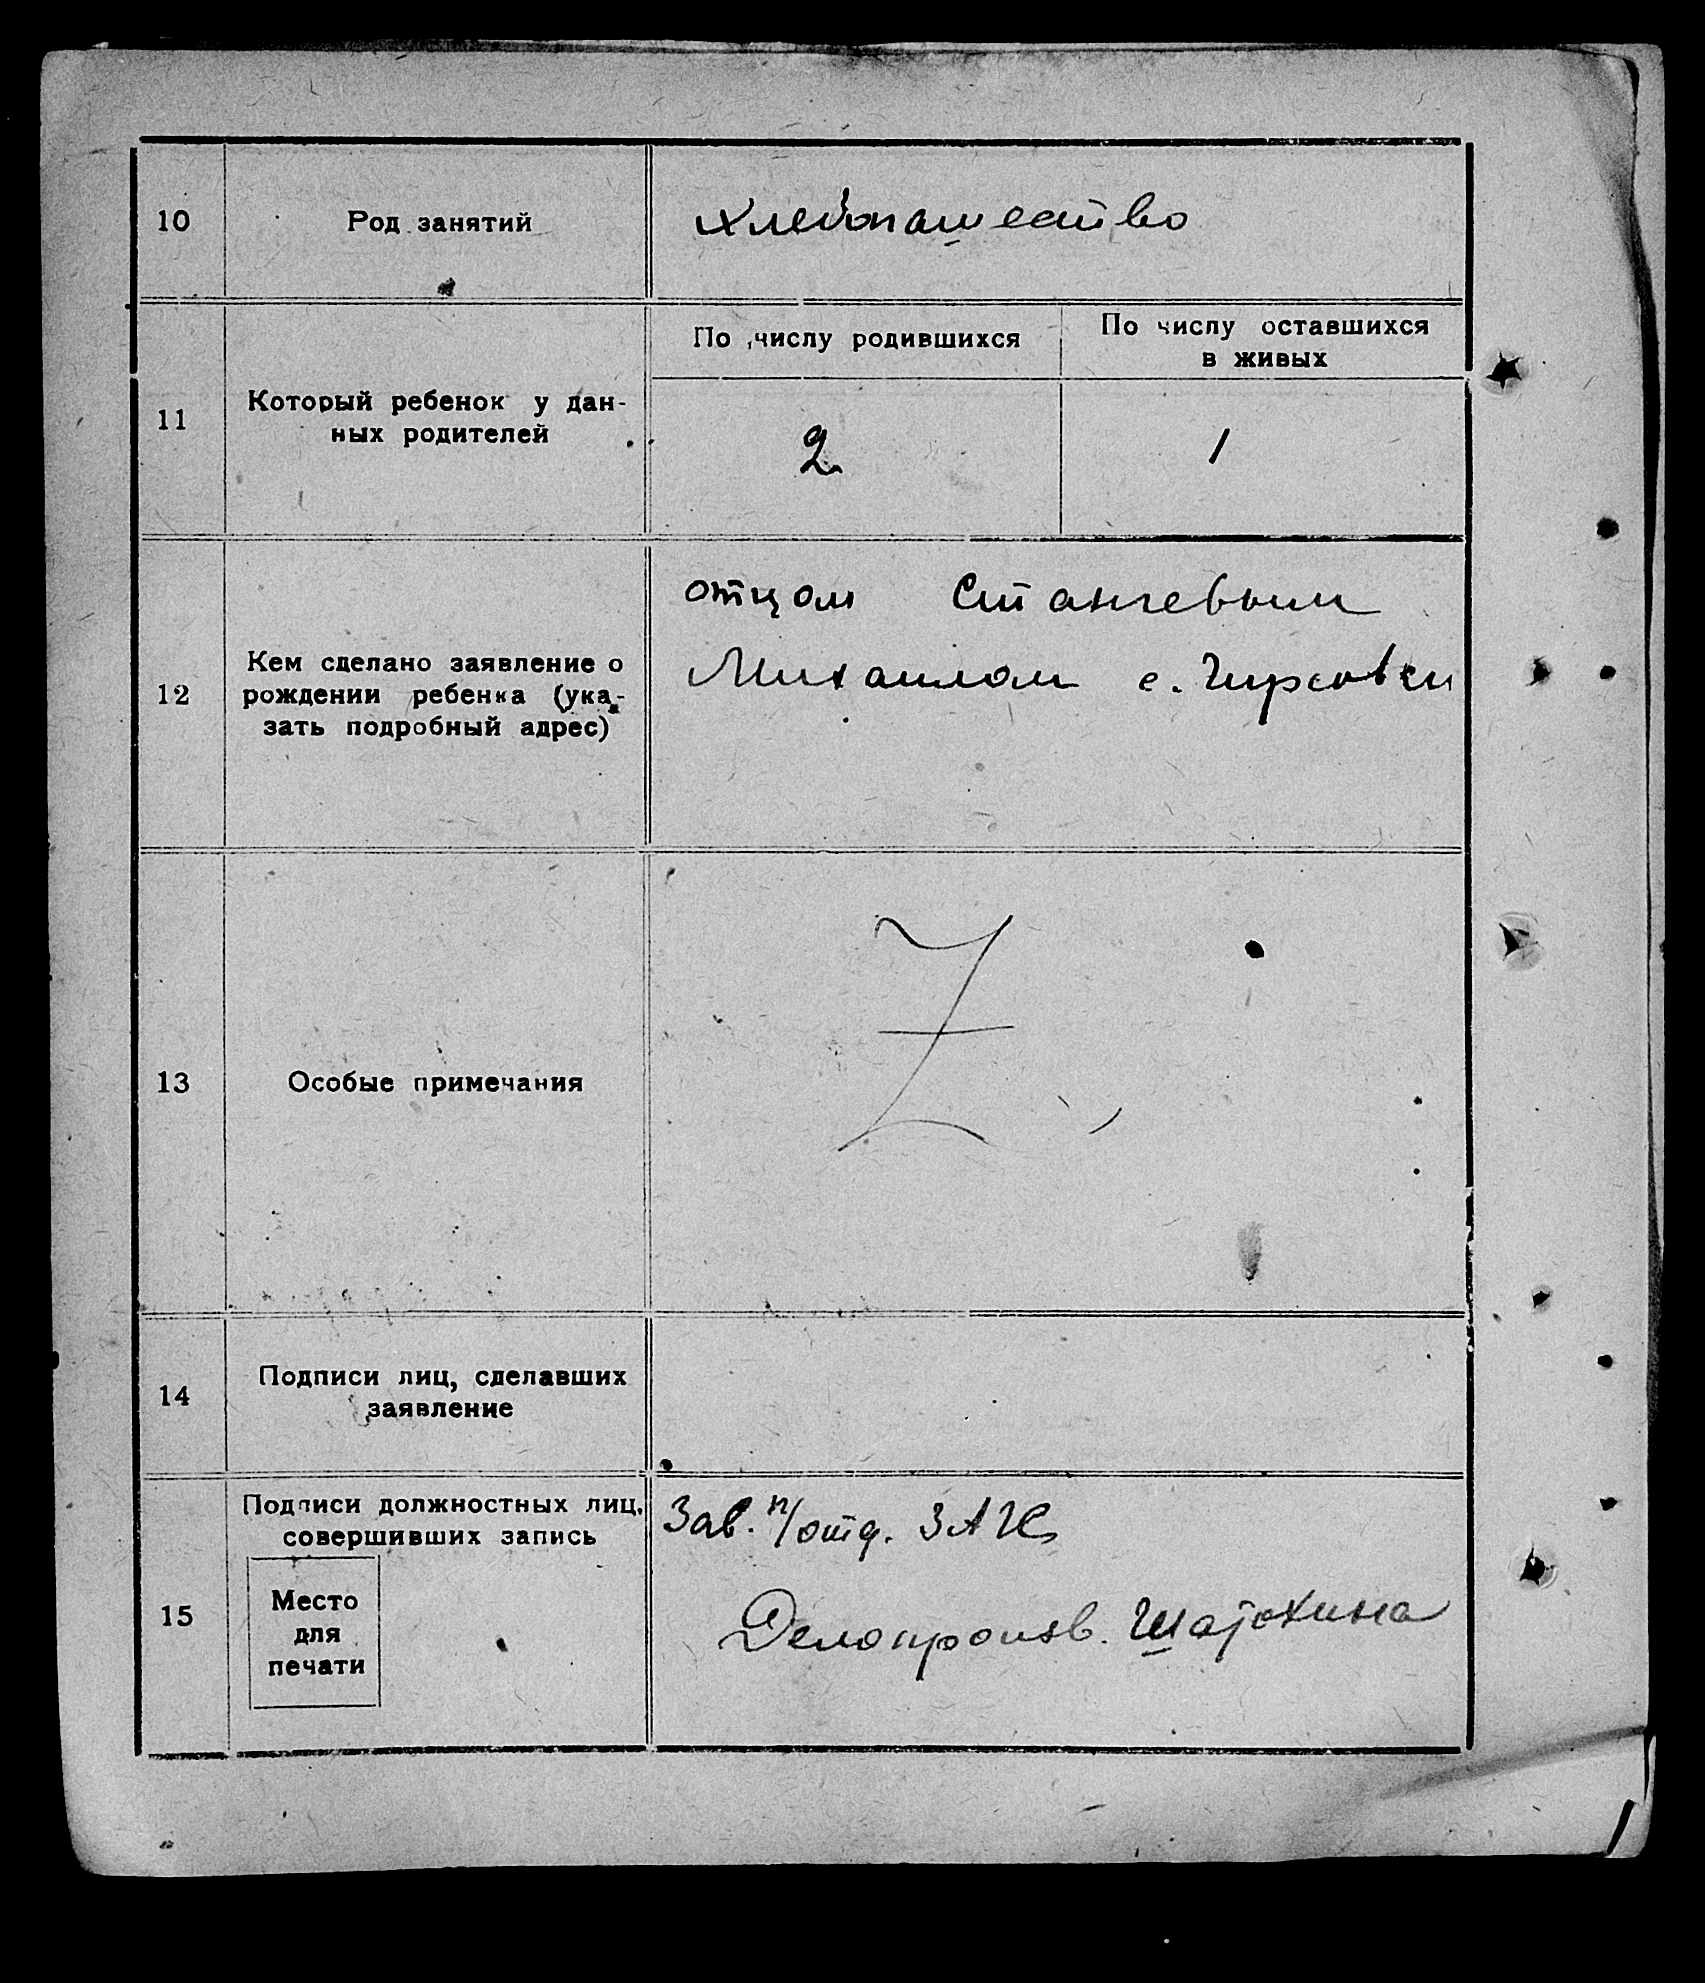 10
Род занятий
хлебопашество
11
Который ребенок у дан-
ных родителей
По числу родившихся
По числу оставшихся
в живых
2
1
12
Кем сделано заявление о
рождении ребенка (ука-
зать подробный адрес)
отцом Станчевым
Михаилом с. Чирсовки
13
Особые примечания
Z
14
Подписи лиц, сделавших
заявление
15
Подписи должностных лиц,
совершивших запись
Место
для
печати
Зав. п/отд. ЗАГС
Делопроизв. Шатохина